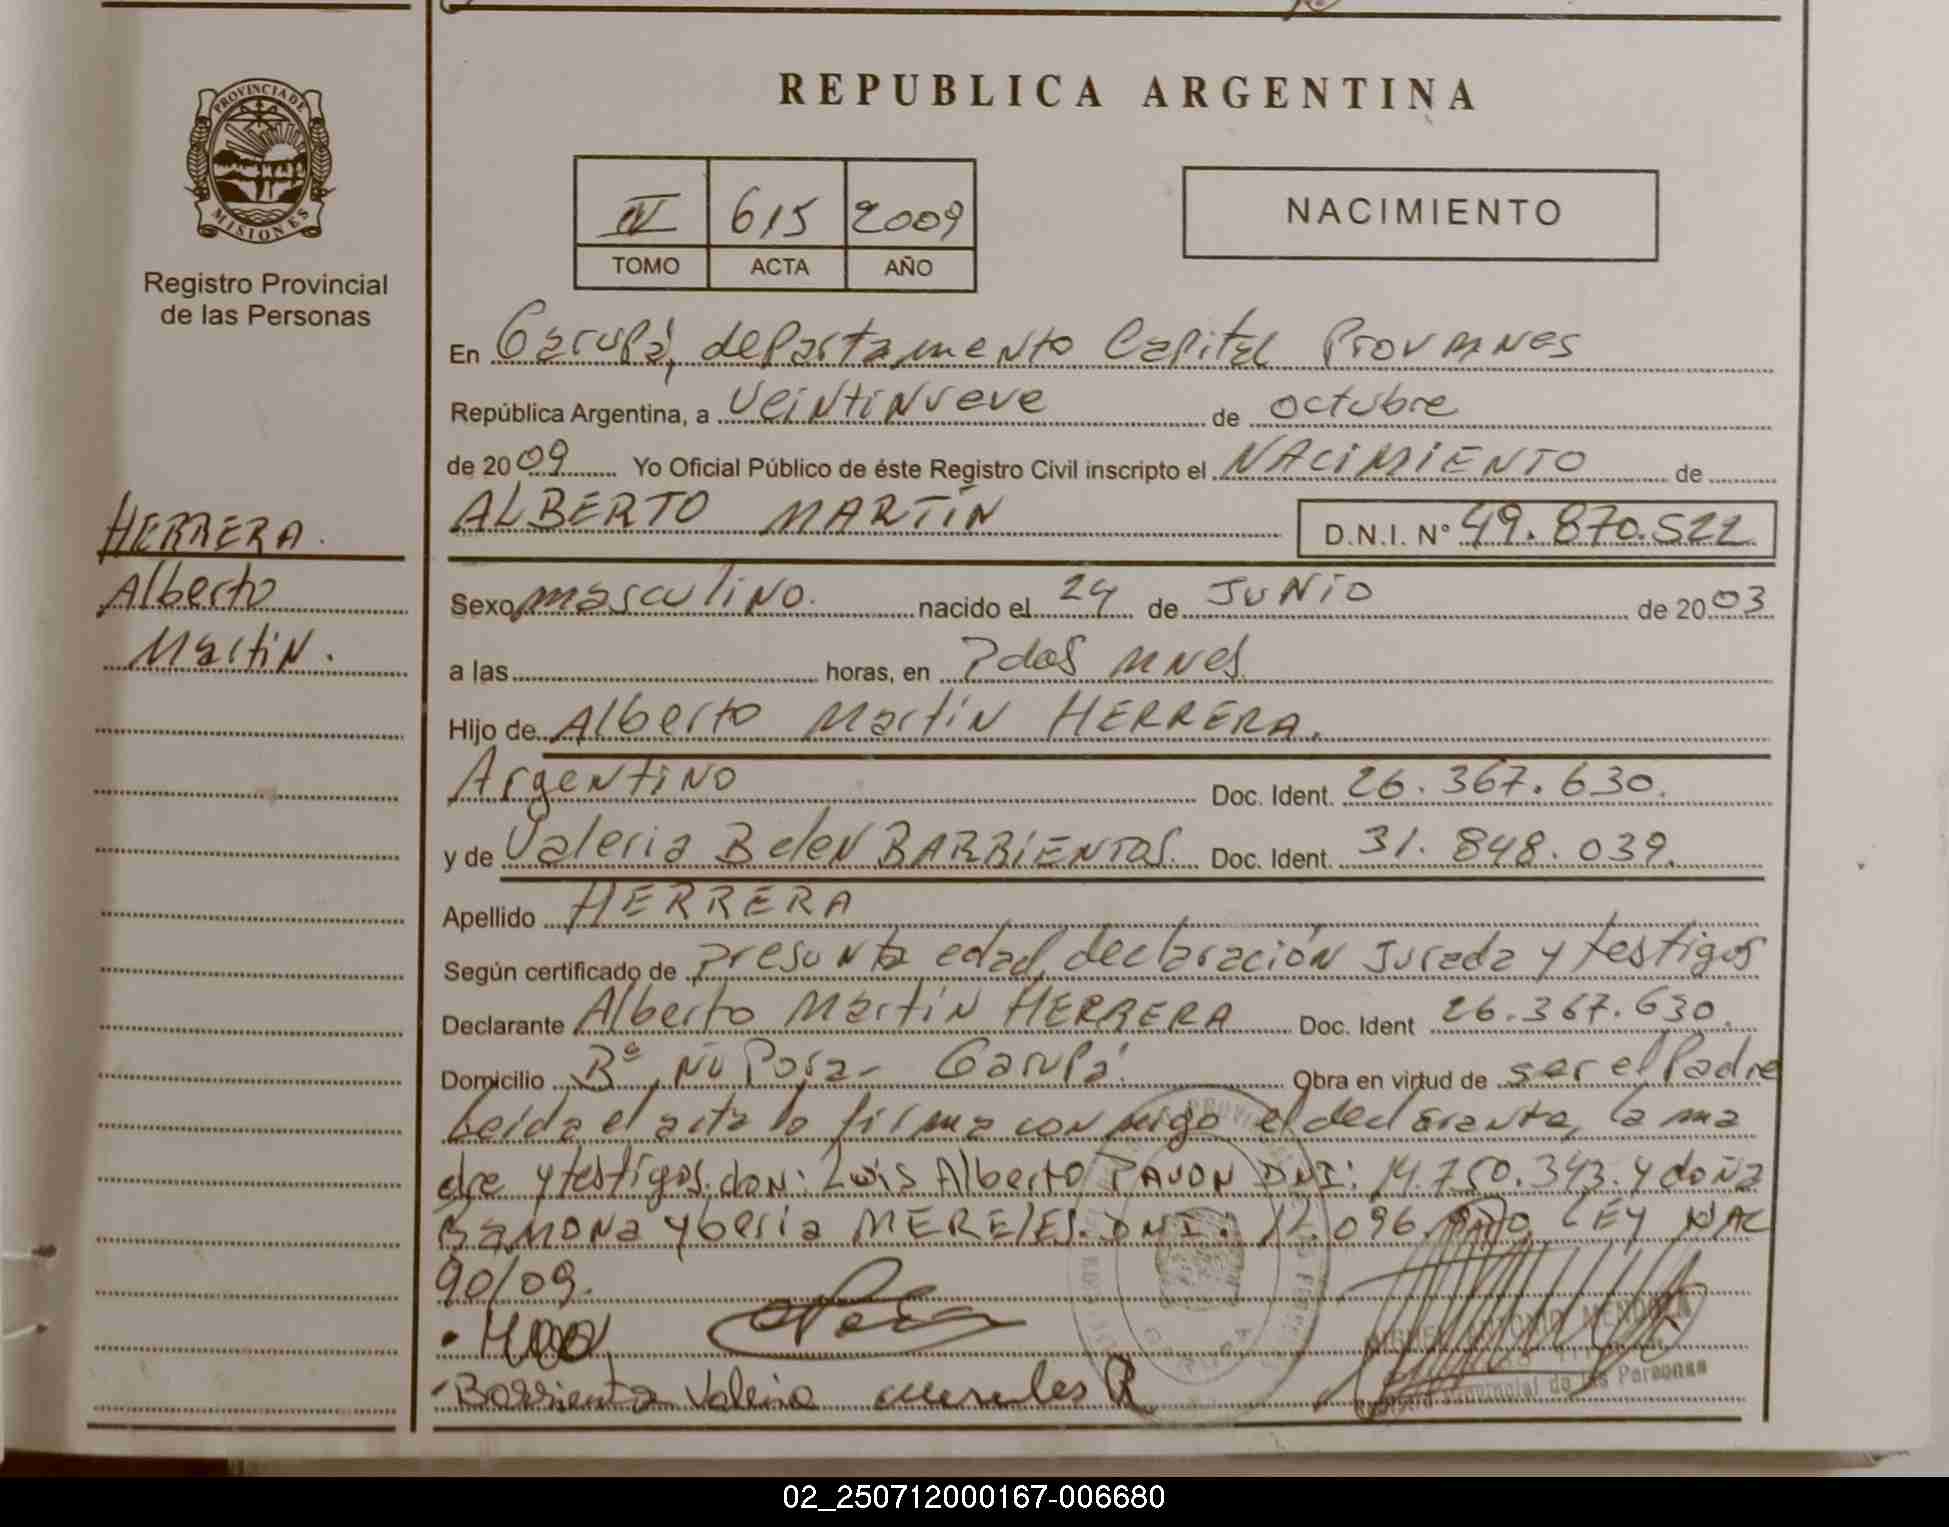 PROVINCIA DE
MISIONES
Registro Provincial
de las Personas
HERRERA.
Alberto
Martin.
REPUBLICA ARGENTINA
IV 615 2009
TOMO ACTA AÑO
NACIMIENTO
En Garupá, departamento Capital Prov Mnes
República Argentina, a veintinueve de octubre
de 2009 Yo Oficial Público de éste Registro Civil inscripto el NACIMIENTO de
ALBERTO MARTÍN D.N.I. N° 49.870.522
Sexo masculino. nacido el 24 de JUNIO de 2003
a las horas, en Pdas Mnes.
Hijo de Alberto Martín HERRERA.
Argentino Doc. Ident. 26.367.630.
y de Valeria Belen BARRIENTOS. Doc. Ident. 31.848.039.
Apellido HERRERA
Según certificado de presunta edad, declaración Jurada y testigos
Declarante Alberto Martín HERRERA Doc. Ident 26.367.630.
Domicilio Bº Ñu Pora - Garupá. Obra en virtud de ser el Padre
Leida el acta la firma conmigo el declarante, la ma
dre y testigos. don: Luis Alberto PAVON DNI: 14.750.343. y doña
Ramona Yberia MERELES. DNI: 12.096. LEY NAC
90/09.
Barrientos Valeria Mereles R
Registro Provincial de las Personas
02_250712000167-006680